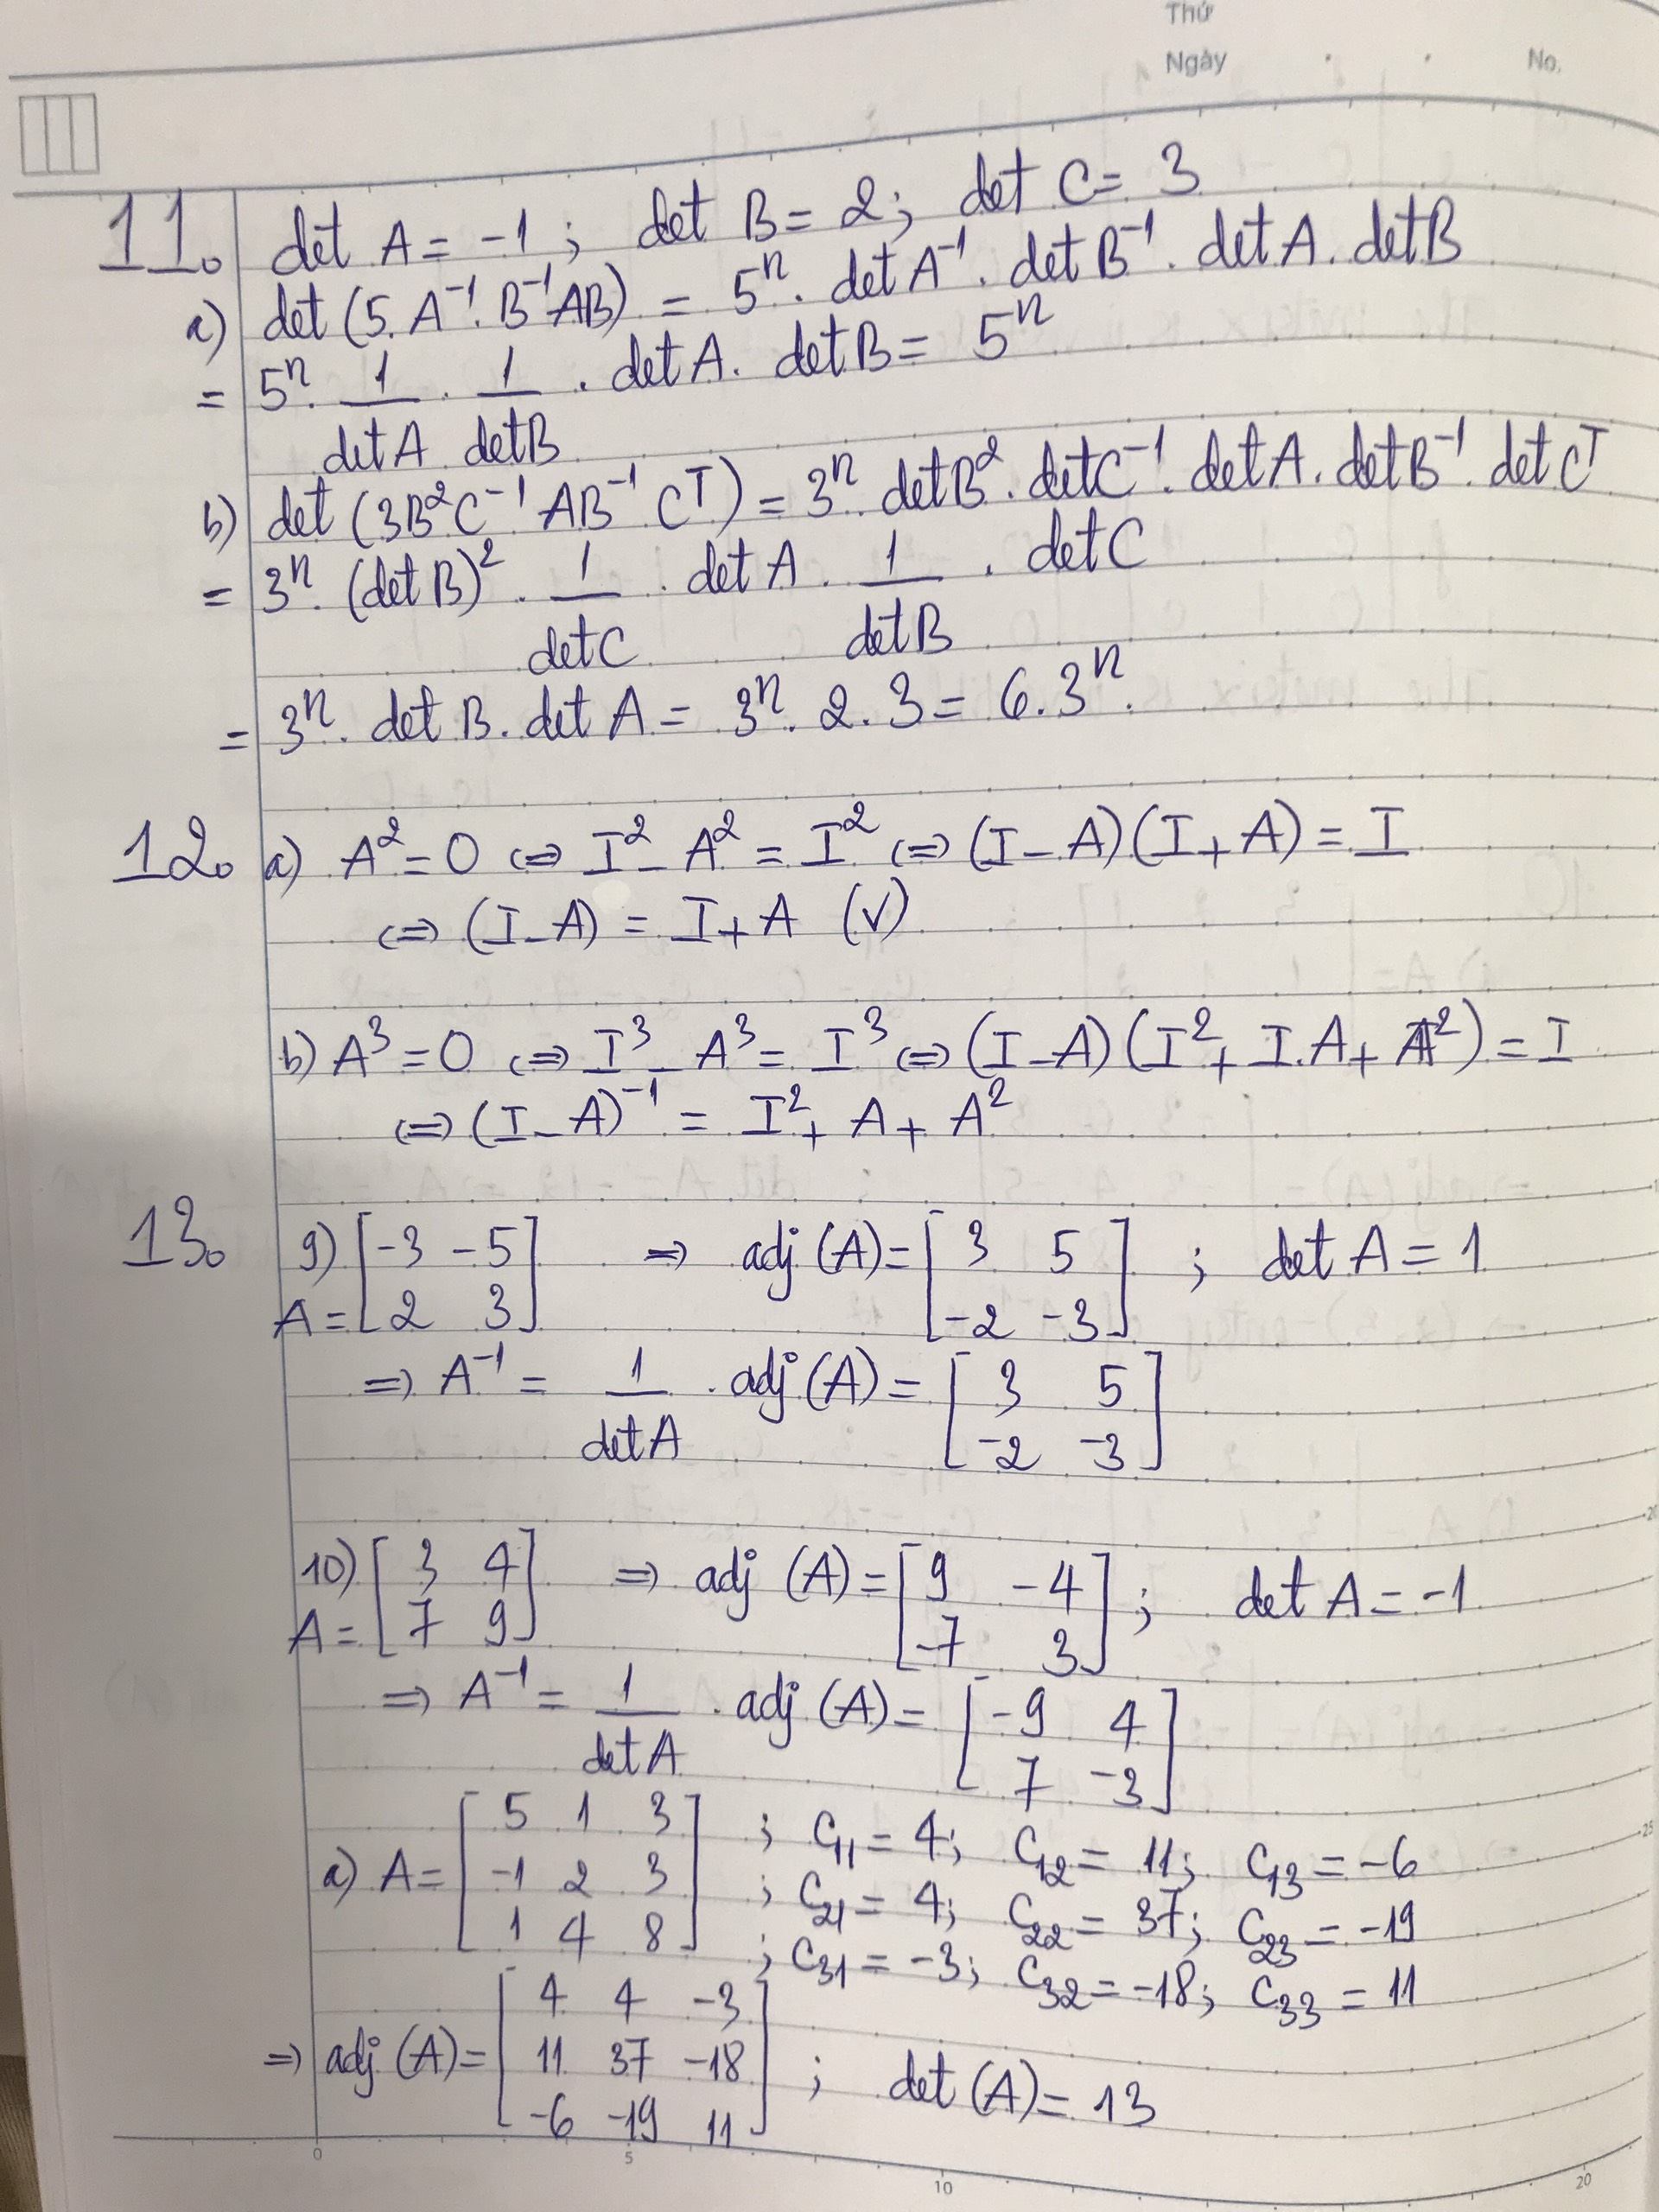 Thứ
Ngày No.
11. det A = -1 ; det B = 2; det C = 3
a) det (5.A⁻¹.B⁻¹AB) = 5ⁿ. det A⁻¹. det B⁻¹. det A. det B
= 5ⁿ. 1/detA . 1/detB . det A. det B = 5ⁿ
b) det (3B²C⁻¹AB⁻¹Cᵀ) = 3ⁿ. detB². detC⁻¹. det A. det B⁻¹. det Cᵀ
= 3ⁿ. (det B)². 1/detC . det A . 1/detB . det C
= 3ⁿ. det B. det A = 3ⁿ. 2. 3 = 6. 3ⁿ.
12. a) A² = 0 ⇔ I² - A² = I² ⇔ (I - A)(I + A) = I
⇔ (I - A) = I + A (v)
b) A³ = 0 ⇔ I³ - A³ = I³ ⇔ (I - A)(I² + I.A + A²) = I
⇔ (I - A)⁻¹ = I² + A + A²
13. 9) A = [-3 -5; 2 3] ⇒ adj (A) = [3 5; -2 -3] ; det A = 1
⇒ A⁻¹ = 1/detA . adj (A) = [3 5; -2 -3]
10) A = [3 4; 7 9] ⇒ adj (A) = [9 -4; -7 3] ; det A = -1
⇒ A⁻¹ = 1/detA . adj (A) = [-9 4; 7 -3]
a) A = [5 1 3; -1 2 3; 1 4 8] ; C₁₁ = 4; C₁₂ = 11; C₁₃ = -6
; C₂₁ = 4; C₂₂ = 37; C₂₃ = -19
; C₃₁ = -3; C₃₂ = -18; C₃₃ = 11
⇒ adj (A) = [4 4 -3; 11 37 -18; -6 -19 11] ; det (A) = 13
0 5 10 20
25